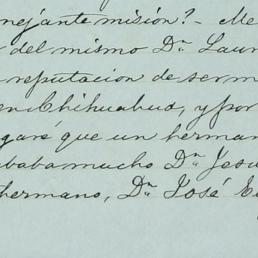 nejante misión?- Me
del mismo Dn. Laur
reputacion de ser m
en Chihuahua, y por
garé que un herman
ababa mucho Dn. Jesu
hermano, Dn. José